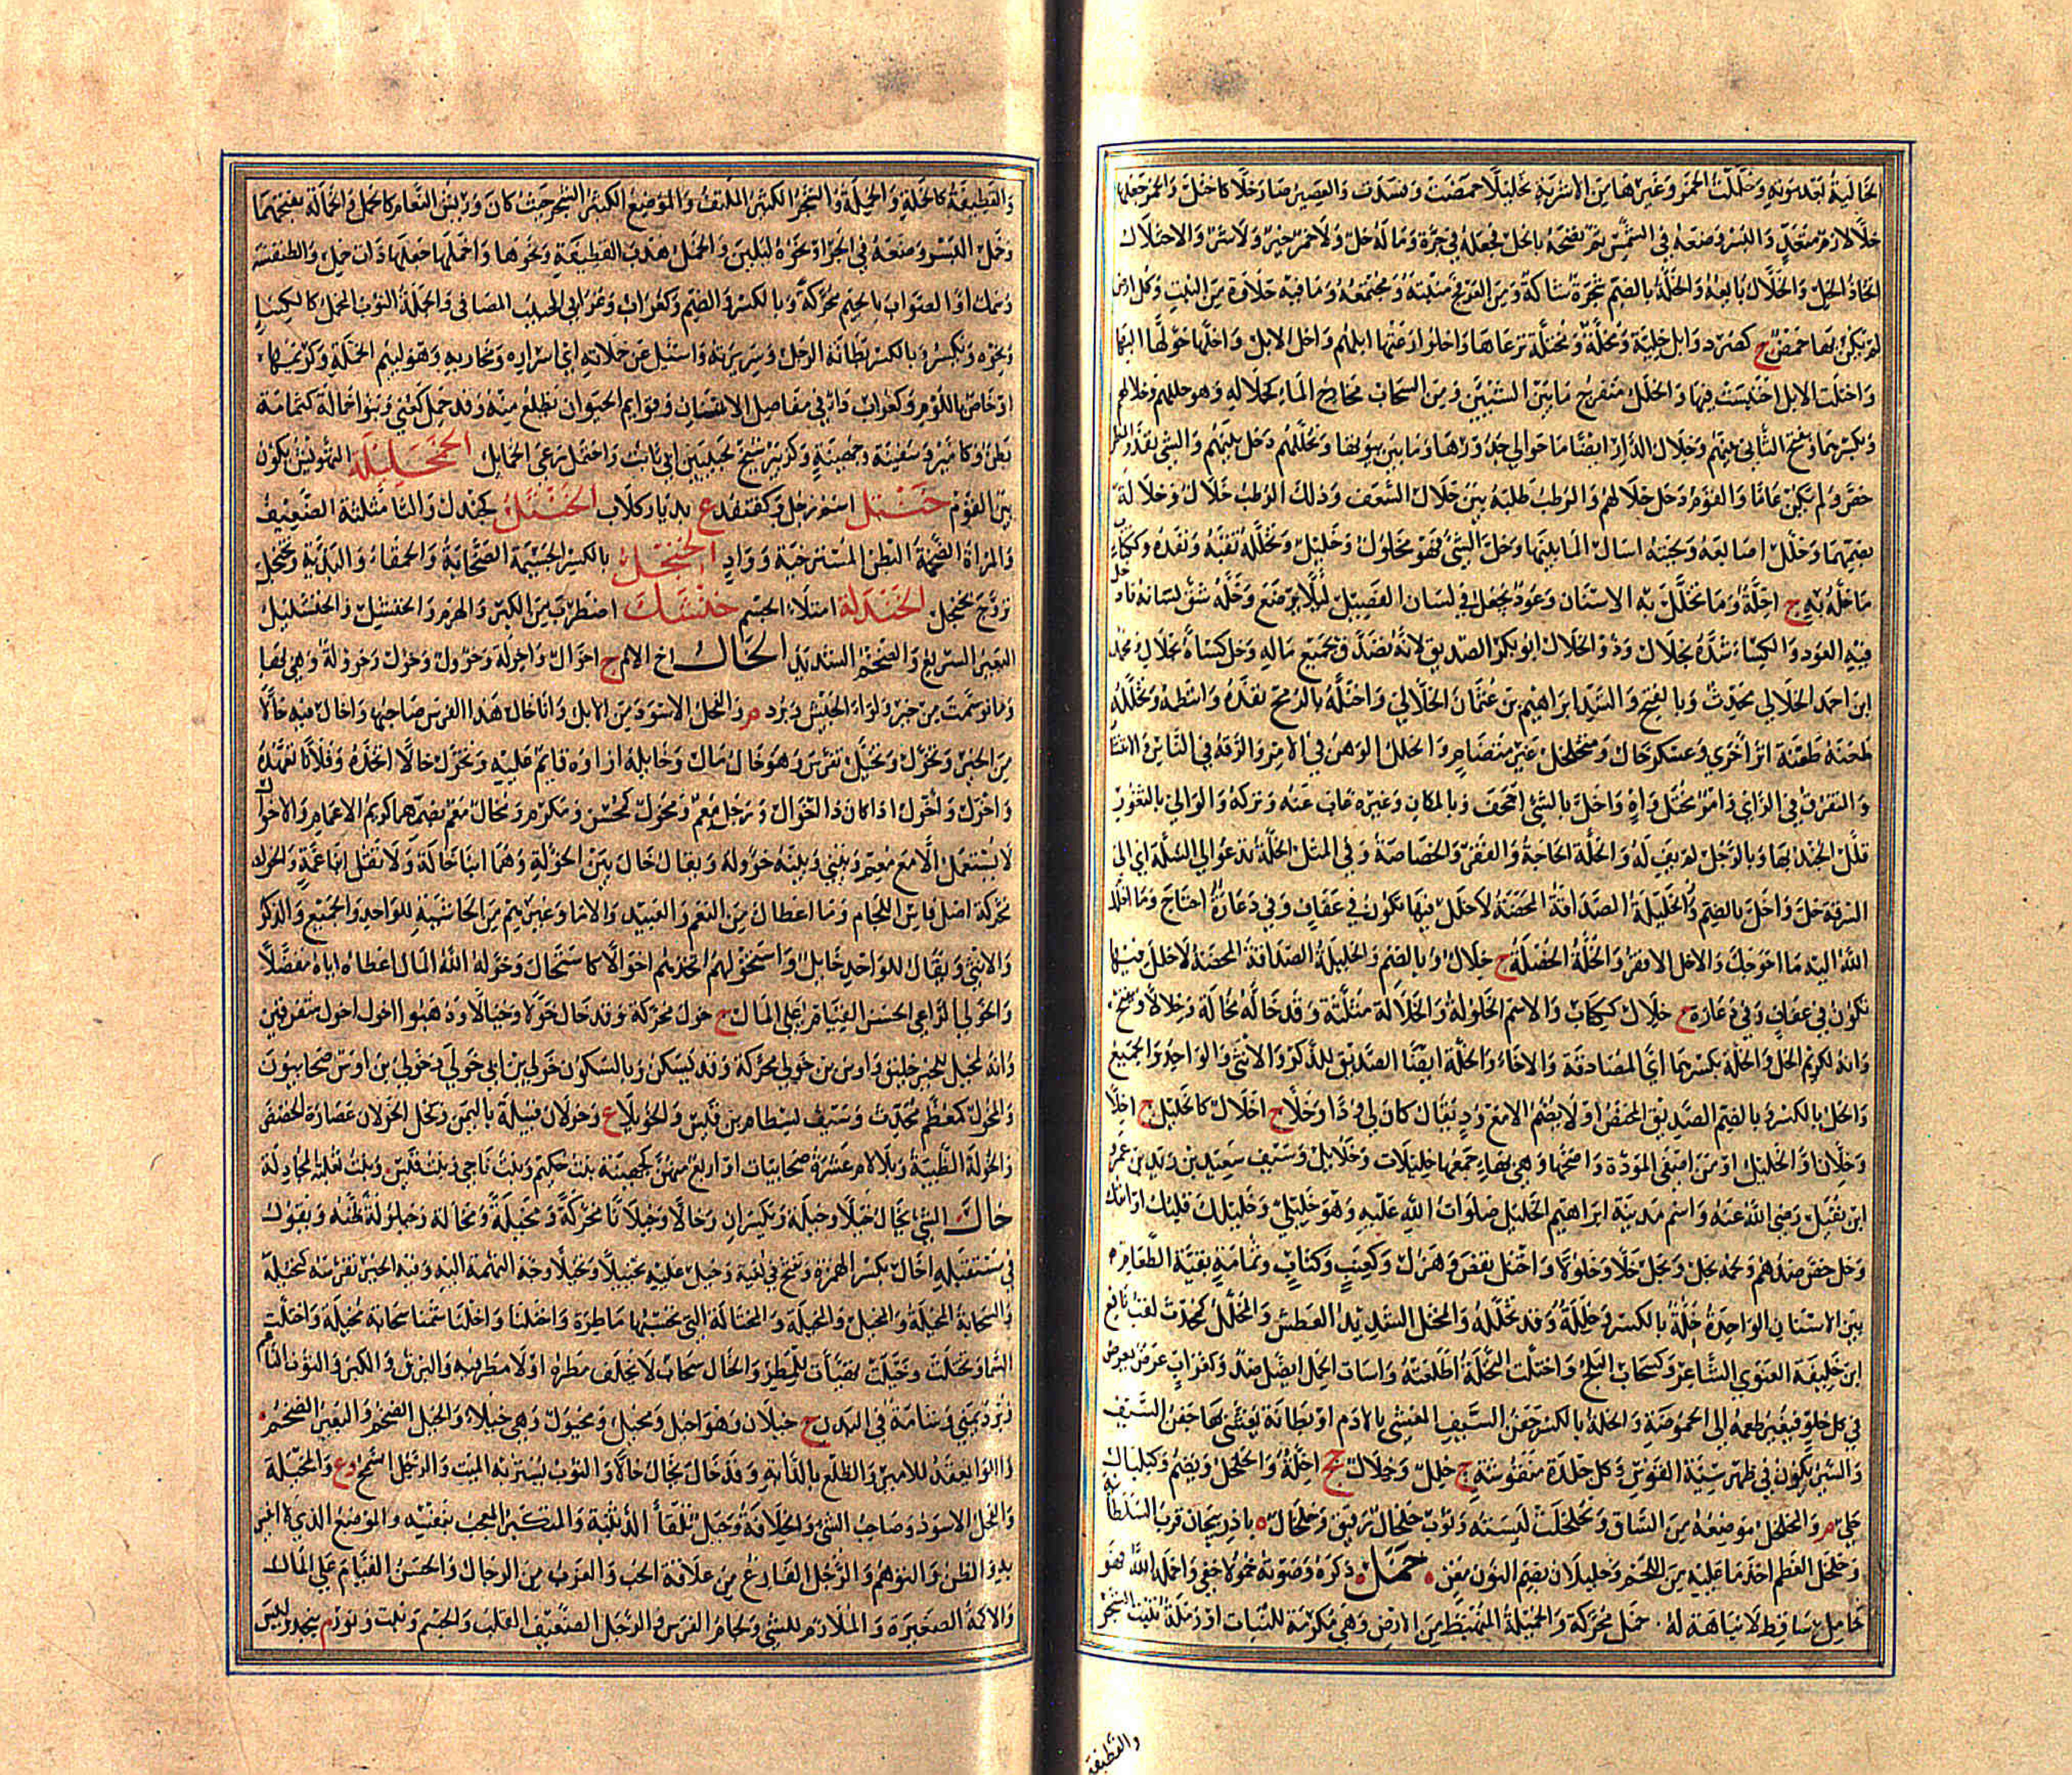 الخالية بعد سونه وخللت الخمر وغيرها من الاشربة تخليلا حمضت وفسدت والعصير صار خلا كاختل والخمر جعلها
خلا لازم متعد والبسر وضعه في الشمس ثم نضحه بالخل فجعله في جرة وماله خل ولا خمر خير ولا شر والاختلال
اتخاذ الخل والخلال بايعه والخلة بالضم شجرة شاكة ومن العرفج منبته ومجتمعه وما فيه حلاوة من النبت وكل ارض
لم يكن بها حمض ج كصرد وابل خلية ومخلة ومختلة ترعاها واخلوا رعتها ابلهم واخل الابل واخلها حولها اليها
واختلت الابل احتبست فيها والخلل منفرج ما بين الشيئين ومن السحاب مخارج الماء كخلاله وهو خللهم وخلالهم
وبكسرهما وبفتح الثاني بينهم وخلال الدار ايضا ما حوالي جدورها وما بين بيوتها وتخللهم دخل بينهم والشي نفذ والمطر
خص ولم يكن عاما والقوم دخل خلالهم والرطب طلبه بين خلال السعف وذلك الرطب خلال وخلالة
بضمهما وخلل اصابعه ولحيته اسال الما بينها وخل الشي فهو مخلول وخليل وتخلله ثقبه ونفذه وككتاب
ما خله به ج اخلة وما تخلل به الاسنان وعود يجعل في لسان الفصيل ليلا يرضع وخله شق لسانه فادخل
فيه العود والكساء شده بخلال وذو الخلال ابو بكر الصديق لانه تصدق بجميع ماله وخل كساه بخلال ومحمد
ابن احمد الخلالي محدث وبالفتح والسيد ابراهيم بن عثمان الخلالي واختله بالرمح نفذه وانتظمه وتخلله
طعنه طعنة اثر اخري وعسكر خال ومتخلخل غير متضام والخلل الوهن في الامر والرقة في الناس والانتشار
والتفرق في الراي وامر مختل واه واخل بالشي اجحف وبالمكان وغيره غاب عنه وتركه والوالي بالثغور
قلل الجند بها وبالرجل لم يف له والخلة الحاجة والفقر والخصاصة وفي المثل الخلة تدعو الي السلة اي الي
السرقة خل واخل بالضم والخليلة الصداقة المحضة لا خلل فيها تكون في عفاف وفي دعارة احتاج وما اخلك
الله اليه ما احوجك والاخل الافقر والخلة الخصلة ج خلال وبالضم والخليلة الصداقة المحضة لا خلل فيها
تكون في عفاف وفي دعارة ج خلال ككتاب والاسم الخلولة والخلالة مثلثة وقد خاله مخالة وخلالا ويفتح
وانه لكريم الخل والخلة بكسرهما اي المصادقة والاخاء والخلة ايضا الصديق للذكر والانثى والواحد والجميع
والخل بالكسر وبالضم الصديق المختص اولا يضم الا مع ود يقال كان لي ودا وخلا ج اخلال كالخليل ج اخلا
وخلان او الخليل او من اصفي المودة واصحها وهي بهاء جمعها خليلات وخلايل وسيف سعيد بن زيد بن عمرو
ابن نفيل رضي الله عنه واسم مدينة ابراهيم الخليل صلوات الله عليه وهو خليلي وخليلك قلبك او انفك
وخل خص ضد عم ولحمه يخل ويخل خلا وخلولا واختل نقص وهزل وكعنب وكتاب وثمامة بقية الطعام
بين الاسنان الواحدة خلة بالكسر وخللة وقد تخلله والمختل الشديد العطش والمخلل كمحدث لقب نافع
ابن خليفة الغنوي الشاعر وكسحاب البلح واختلت النخلة اطلعته واسات الحمل ايضا ضد وكغراب عرض يعرض
في كل حلو فيغير طعمه الي الحموضة والخلة بالكسر جفن السيف المغشي بالادم او بطانة يغشي بها جفن السيف
والسير يكون في ظهر سية القوس وكل جلدة منقوشة ج خلل وخلال جج اخلة والخلخل ويضم وكبلبال
حلي م والمخلخل موضعه من الساق وتخلخلت لبسته وثوب خلخال رقيق وخلخال د باذربيجان قرب السلطانية
وخلخل العظم اخذ ما عليه من اللحم وخليلان بضم النون مغن خمل ذكره وصوته خمولا خفي واخمله الله فهو
خامل ساقط لا نباهة له خمل محركة والخميلة المنهبط من الارض وهي مكرمة للنبات او رملة تنبت الشجر
والقطيفة
والقطيفة كالخملة والخميلة والشجر الكثير الملتف والموضع الكثير الشجر حيث كان وريش النعام كالخمل والخمالة بفتحهما
وخمل البسر وضعه في الجرار ونحوه ليلين والخمل هدب القطيفة ونحوها واخملها جعلها ذات خمل والطنفسة
وسمك او الصواب بالجيم محركة وبالكسر والضم وكغراب وغرابي الحبيب المصافي والخملة الثوب المخمل كالكساء
ونحوه ويكسر وبالكسر بطانة الرجل وسريرته واسئل عن خملاته اي اسراره ومخازيه وهو ليئم الخملة وكريمها
او خاص باللؤم وكغراب داء في مفاصل الانسان وقوايم الحيوان تظلع منه وقد خمل كعني وبنو اخمالة كثمامة
بطن وكامير وسفينة وجهينة وكزبير شيخ لحبيب بن ابي ثابت واختمل رعي الخمايل الخمجليلة التهويش يكون
بين القوم خنتل اسم رجل وكقنفد ع بديار كلاب الخنثل كجندل والثا مثلثة الضعيف
والمراة الضخمة البطن المسترخية وواد الخنجل بالكسر الجسيمة الصخابة والحمقاء والبذية وخنجل
تزوج بخنجل الخندلة امتلاء الجسم خنشل اضطرب من الكبر والهرم والخنشيل والخنشليل
البعير السريع والضخم الشديد الخال اخ الام ج اخوال واخولة وخؤول وخول وخؤولة وهي بهاء
وما توسمت من خير ولواء الجيش وبرد م والفحل الاسود من الابل وانا خال هذا الفرس صاحبها واخال فيه خالا
من الخير وتخول وتخيل تفرس وهو خال مال وخايله ازاوه قايم عليه وتخول خالا اتخذه وفلانا تعهده
واخول واخول اذا كان ذا اخوال ورجل معم ومخول كمحسن ومكرم ومخال معم بضمهما كريم الاعمام والاخوال
لا يستعمل الا مع معم وبيني وبينه خؤولة ويقال خال بين الخؤلة وهما ابنا خالة ولا تقل ابنا عمة والخول
محركة اصل فاس اللجام وما اعطاك من النعم والعبيد والاما وغيرهم من الحاشية للواحد والجميع والذكر
والانثي ويقال للواحد خايل واستخولهم اتخذهم اخوالا كاستخال وخوله الله المال اعطاه اياه متفضلا
والخولي الراعي الحسن القيام علي المال ج خول محركة وقد خال خولا وخيالا وذهبوا اخول اخول متفرقين
وانه لمخيل للخير خليق واوس بن خولي محركة وقد يسكن وبالسكون خولي بن ابي خولي وخولي بن اوس صحابيون
والمخول كمعظم محدث وسيف لبسطام بن قيس والخويلا ع وخولان قبيلة باليمن وكحل الخولان عصارة الحضض
والخولة الظبية وبلا لام عشرة صحابيات او اربع منهن كجهينة بنت حكيم وبنت ناجي وبنت قيس وبنت ثعلبة المجادلة
خال الشي يخال خيلا وخيلة ويكسران وخالا وخيلانا محركة ومخيلة ومخالة وخيلولة ظنه وتقول
في مستقبله اخال بكسر الهمزة وتفتح في لغية وخيل عليه تخييلا وتخيلا وجه التهمة اليه وفيه الخير تفرسه كتخيله
والسحابة المخيلة والمخيل والمخيلة والمختالة التي تحسبها ماطرة واخيلنا واخلنا شمنا سحابة مخيلة واخيلت
السماء وتخيلت وخيلت تهيات للمطر والخال سحاب لا يخلف مطره او لا مطر فيه والبرق والكبر والثوب الناعم
وبرد يمني وشامة في البدن ج خيلان وهو اخيل ومخيل ومخيول وهي خيلاء والجبل الضخم والبعير الضخم
واللواء يعقد للامير والظلع بالدابة وقد خال يخال خالا والثوب يستر به الميت والرجل السمح وع والمخيلة
والفحل الاسود وصاحب الشي والخلافة وجبل تلقا الدثينة والمتكبر المعجب بنفسه والموضع الذي لا انيس
به والظن والتوهم والرجل الفارغ من علاقة الحب والعزب من الرجال والحسن القيام علي المال
والاكمة الصغيرة والملازم للشي ولجام الفرس والرجل الضعيف القلب والجسم ونبت ونور م بنجد وليس